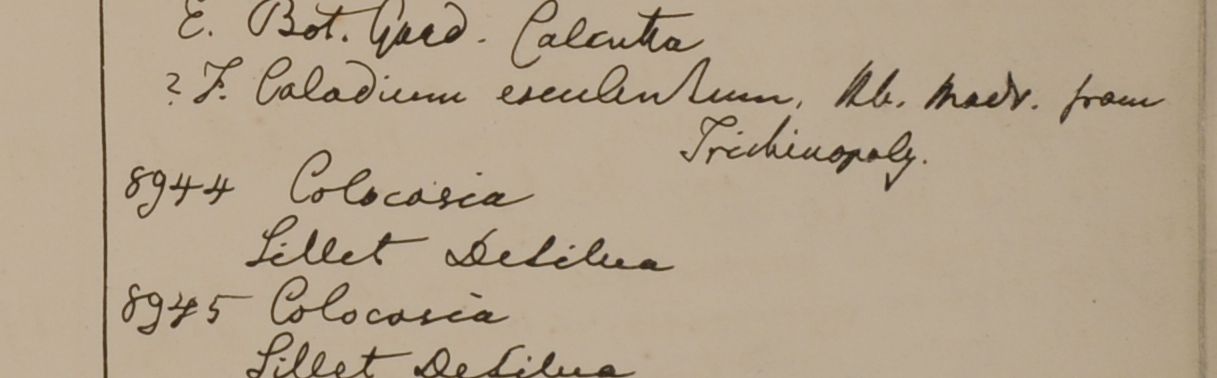 E. Bot. Gard. Calcutta
? F. Caladium esculentum, Hb. Madr. from
Trichinopoly.
8944 Colocasia
Sillet DeSilva
8945 Colocasia
Sillet DeSilva